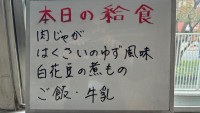 本日の給食
肉じゃが
はくさいのゆず風味
白花豆の煮もの
ご飯・牛乳